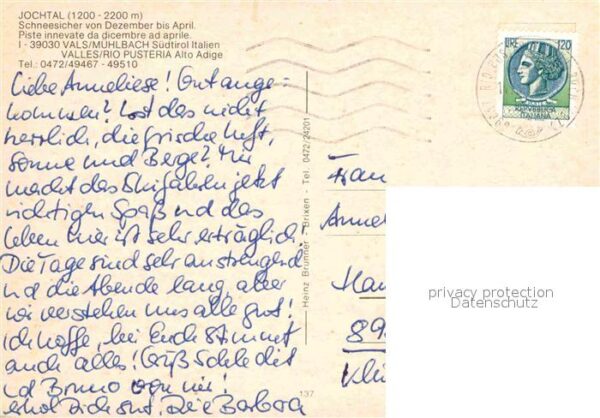 JOCHTAL (1200 - 2200 m)
Schneesicher von Dezember bis April.
Piste innevate da dicembre ad aprile.
I - 39030 VALS/MÜHLBACH Südtirol Italien
VALLES/RIO PUSTERIA Alto Adige
Tel.: 0472/49467 - 49510
Liebe Anneliese! Gut ange-
kommen? Ist das nicht
herrlich, die frische Luft,
Sonne und Berge? Mir
macht das Skifahren jetzt
richtigen Spaß und das
Leben hier ist sehr erträglich.
Die Tage sind sehr anstrengend
und die Abende lang, aber
wir verstehen uns alle gut!
Ich hoffe, bei Euch stimmt
auch alles! Grüß
und Bruno von mir!
Die Barbara
Heinz Brunner - Brixen - Tel. 0472/24201
137
LIRE 120
Frau
Annel
Hau
89
Kli
privacy protection
Datenschutz